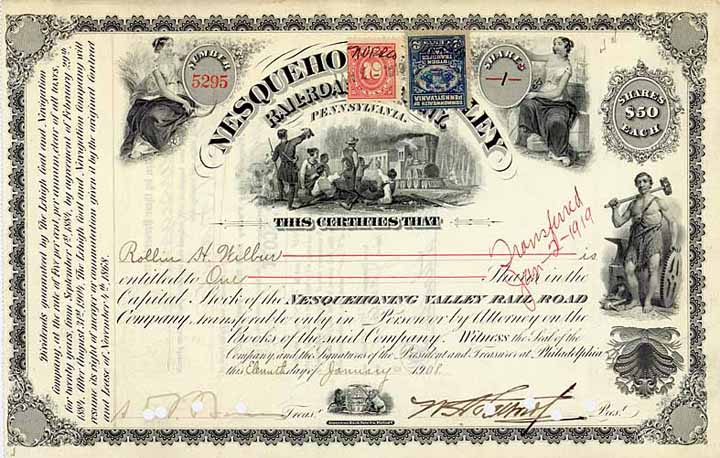 NUMBER
5295
SHARES
1
SHARES
$50
EACH
NESQUEHONING VALLEY
RAILROAD
PENNSYLVANIA.
COMMONWEALTH OF
PENNSYLVANIA
THIS CERTIFIES THAT
Rollin H. Wilbur is
entitled to One Shares in the
Capital Stock of the NESQUEHONING VALLEY RAIL ROAD
Company, transferable only in Person or by Attorney on the
Books of the said Company. Witness the Seal of the
Company, and the Signatures of the President and Treasurer at Philadelphia
this Eleventh day of January 1908.
Treas.r
Pres.t
Transferred
Jan-2-1919
Dividends guaranteed by The Lehigh Coal and Navigation
Company, at the rate of Five per cent, per annum, clear of all taxes,
for twenty years, from September 1st, 1884, by agreement of February 29th,
1884. After August 31st, 1904, The Lehigh Coal and Navigation Company will
resume its right of merger or commutation given it by the original Contract
and Lease of November 4th, 1868.